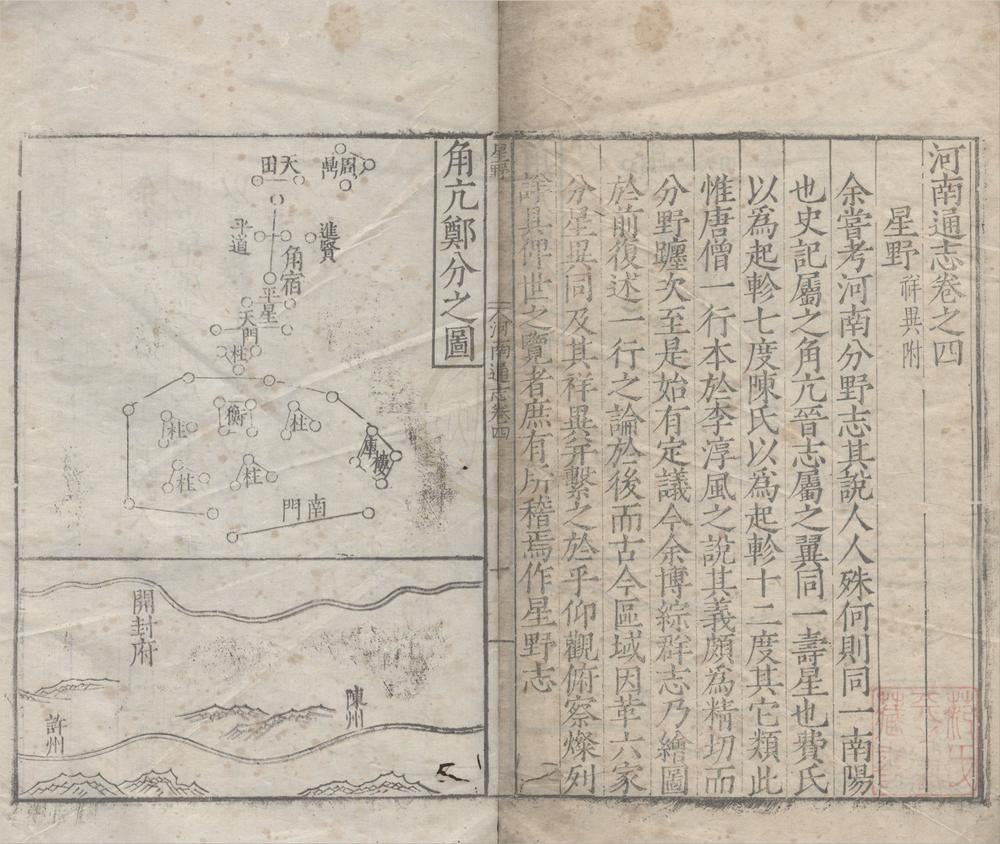 河南通志卷之四
星野 祥異附
余嘗考河南分野志其說人人殊何則同一南陽
也史記屬之角亢晉志屬之翼同一壽星也費氏
以爲起軫七度陳氏以爲起軫十二度其它類此
惟唐僧一行本於李淳風之說其義頗為精切而
分野躔次至是始有定議今余博綜群志乃繪圖
於前復述一行之論於後而古今區域因革六家
分星異同及其祥異并繫之於乎仰觀俯察燦列
詳具俾世之覽者庶有所稽焉作星野志
星野
河南通志卷四
一
角亢鄭分之圖
周鼎
天田
進賢
平道
角宿
平星
天門
柱
庫樓
柱
衡
柱
柱
柱
南門
陳州
開封府
許州